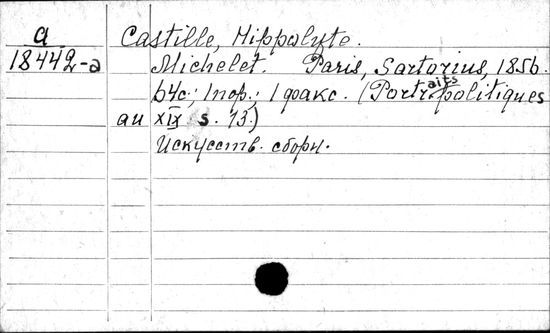 a
18442-a
Castille, Hippolyte.
Michelet. Paris, Sartorius, 1856.
64с.; 1 пор.; 1 факс. (Portraits politiques
au XIX s. 13)
Искусств. сборн.